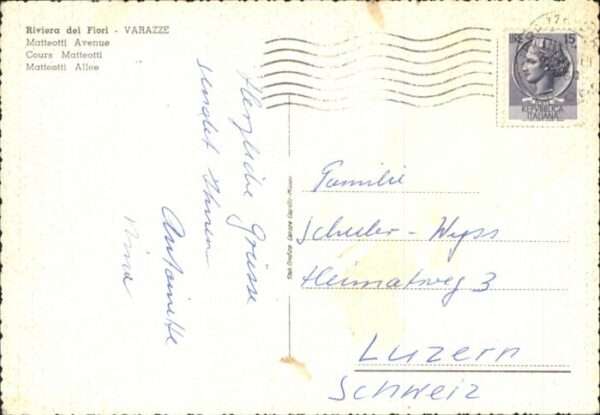 Riviera dei Fiori - VARAZZE
Matteotti Avenue
Cours Matteotti
Matteotti Allee
Herzliche Grüsse
sendet Ihnen
Antoinette
LIRE 15
REPUBBLICA
ITALIANA
Familie
Schuler-Wyss
Heimatweg 3
Luzern
Schweiz